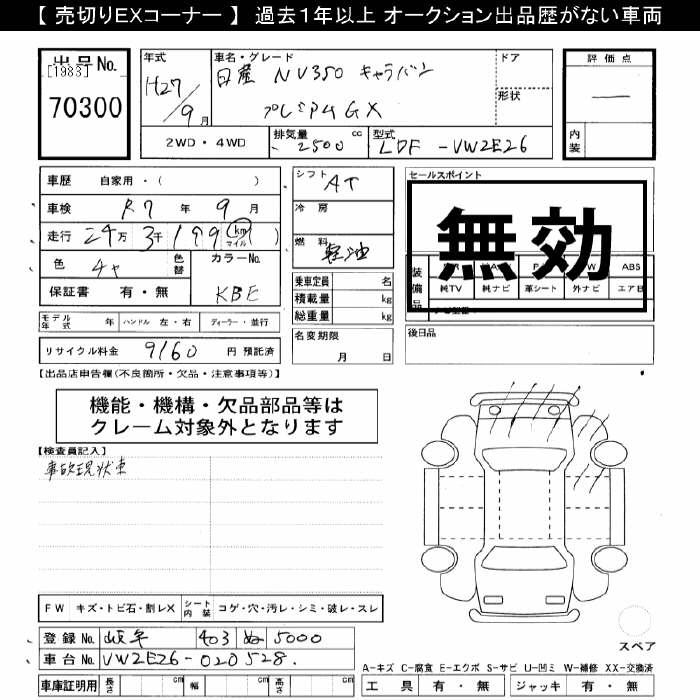 【 売切りEXコーナー 】 過去1年以上 オークション出品歴がない車両
出品No.
[1983]
70300
年式
H27/9月
車名・グレード
日産 NV350 キャラバン
プレミアムGX
ドア
形状
評価点
―
内装
2WD・4WD
排気量
2500 cc
型式
LDF-VW2E26
車歴 自家用・( )
車検 R7 年 9 月
走行 24万 3千 199 (km マイル)
色
色替
カラーNo.
KBE
保証書 有・無
シフト AT
冷房
燃料 軽油
乗車定員 名
積載量 kg
総重量 kg
名変期限
月 日
セールスポイント
無効
装備品
ABS
純TV 純ナビ 革シート 外ナビ エアB
後日品
モデル年式 年 ハンドル 左・右 ディーラー・並行
リサイクル料金 9160 円 預託済
【出品店申告欄(不良箇所・欠品・注意事項等)】
機能・機構・欠品部品等は
クレーム対象外となります
【検査員記入】
事故現状車
FW キズ・トビ石・割レX シート内装 コゲ・穴・汚レ・シミ・破レ・スレ
登録No. 岐阜 403 ぬ 5000
車台No. VW2E26-020528.
車庫証明用 長さ cm 幅 cm 高さ cm
スペア
A-キズ C-腐食 E-エクボ S-サビ U-凹ミ W-補修 XX-交換済
工具 有・無 ジャッキ 有・無